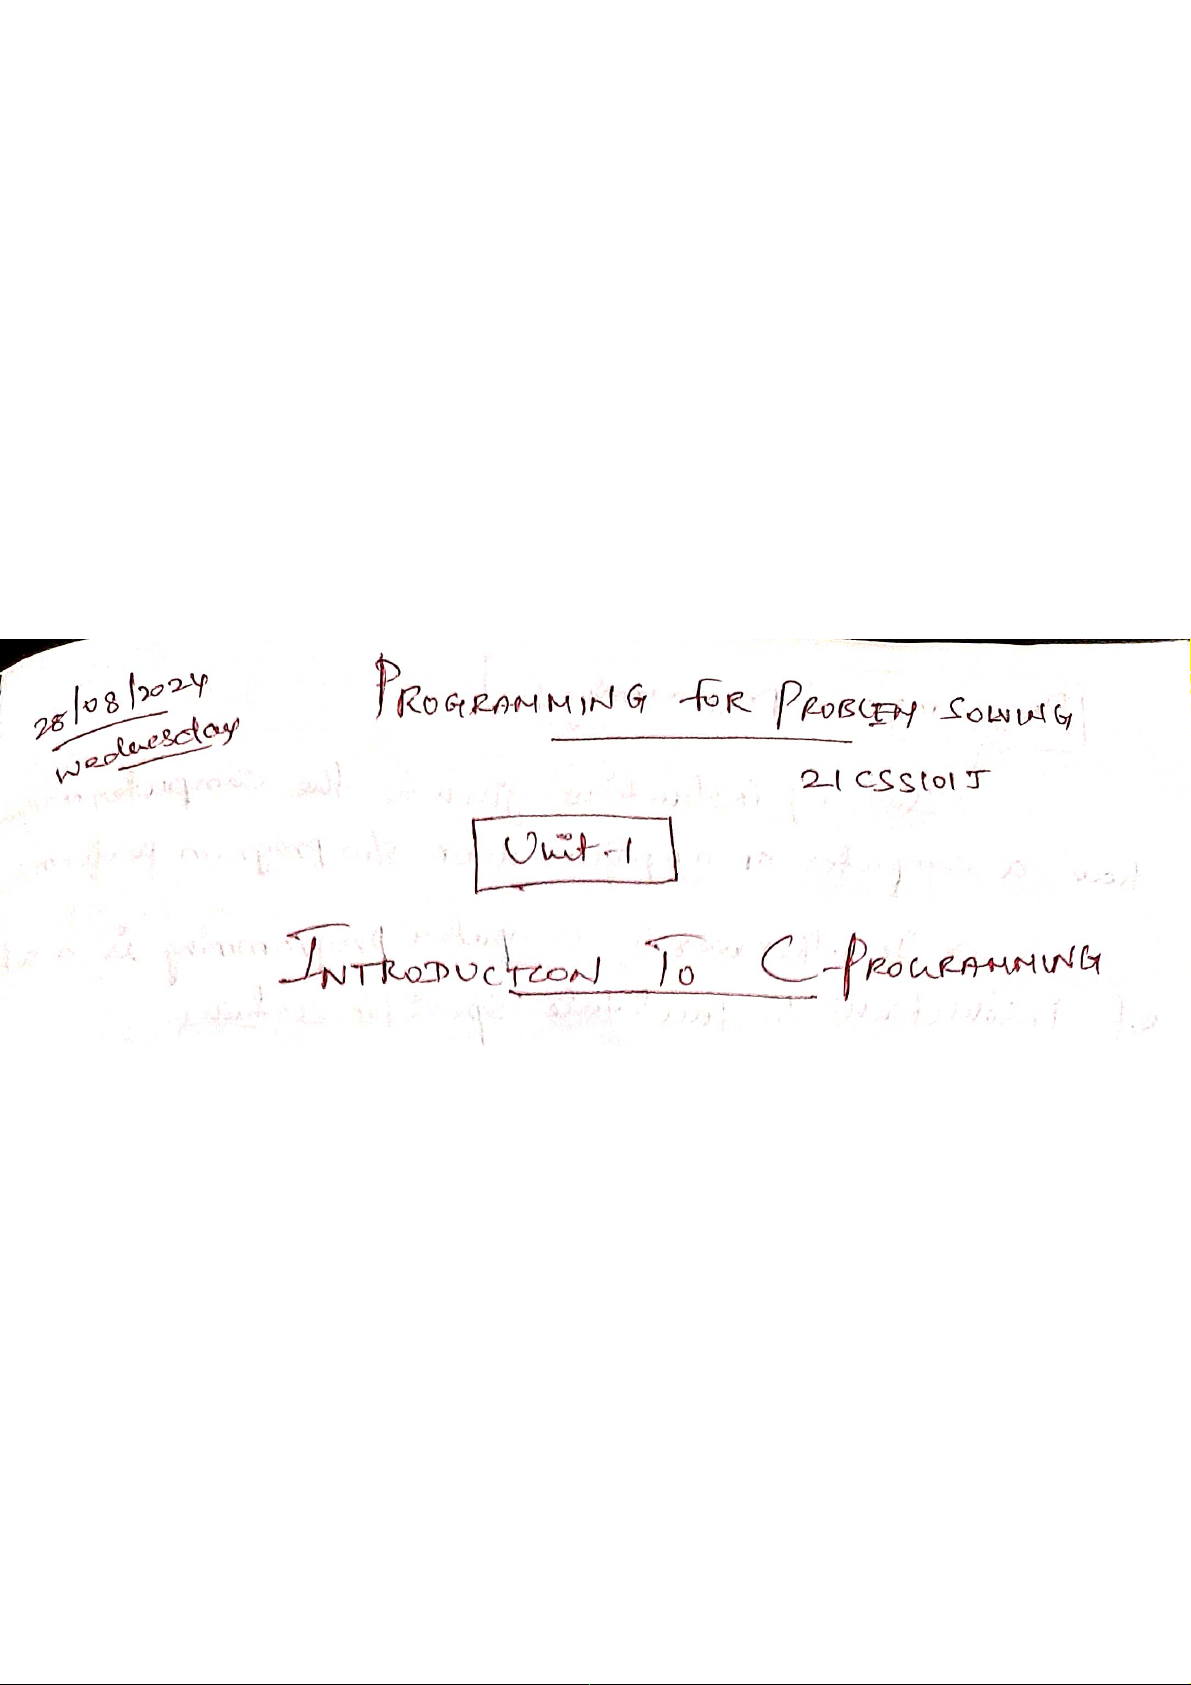 28/08/2024
Wednesday
PROGRAMMING FOR PROBLEM SOLVING
21CSS101J
Unit-1
INTRODUCTION TO C-PROGRAMMING